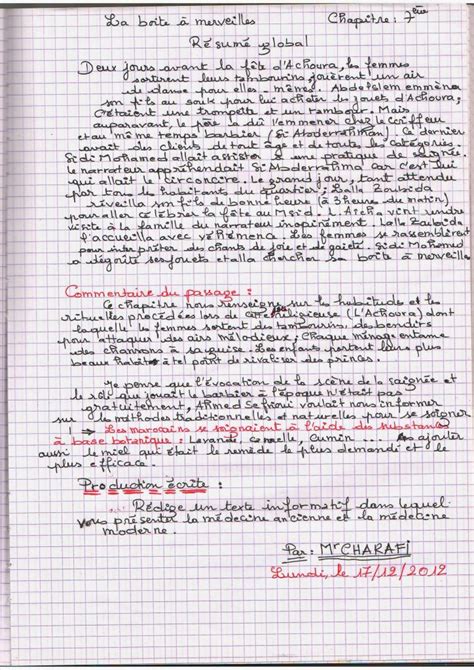 La boîte à merveilles Chapitre : 7ème
Résumé global
Deux jours avant la fête d'Achoura, les femmes
sortirent leurs tambourins, jouèrent un air
de danse pour elles-mêmes. Abdeslem emmena
son fils au souk pour lui acheter les jouets d'Achoura,
C'étaient une trompette et un tambour. Mais
auparavant, le père le dû l'emmener chez le coiffeur
et au même temps barbier (Si Abderrahman). Ce dernier
avait des clients de tout âge et de toutes les catégories.
Sidi Mohamed allait assister à une pratique de saignée
le narrateur appréhendait Si Abderrahman car c'est lui
qui allait le circoncire. Le grand jour, tant attendu
par tous les habitants du quartier; Lalla Zoubida
réveilla son fils de bonne heure (à 3 heure du matin)
pour aller célébrer la fête au Msid. L. Aicha vint rendre
visite à la famille du narrateur inopinément. Lalle Zoubida
l'accueilla avec véhémence. Les femmes se rassemblèrent
pour interpréter des chants de joie et de gaieté. Sidi Mohamed
a ses jouets et alla chercher sa boîte à merveille
Commentaire du passage :
Ce chapitre nous renseigne sur les habitudes et les
rituelles procédées lors de religieuse (L'Achoura) dont
laquelle les femmes sortent des tambourins, des bendirs
pour attaquer des airs mélodieux; Chaque ménage entame
des chansons à sa guise. Les enfants portent leurs plus
beaux habits à tel point de rivaliser des princes.
Je pense que l'évocation de la scène de la saignée et
le rôle que jouait le barbier à l'époque n'était pas
gratuitement, Ahmed Sefrioui voulait nous informer
sur les méthodes traditionnelles et naturelles pour se soigner
! → Les marocains se soignaient à l'aide des substances
à base botanique : Lavande, cannelle, Cumin ... ajouter
aussi le miel qui était le remède le plus demandé et le
plus efficace.
Production écrite :
... Rédige un texte informatif dans lequel
vous présenter la médecine ancienne et la médecine
moderne.
Par : Mr CHARAFI
Lundi, le 17/12/2012